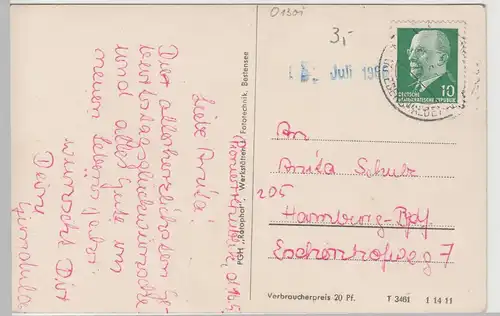 01301
3,-
Juli 196
DEUTSCHE
DEMOKRATISCHE REPUBLIK
10
Liebe Anita!
Dir allerherzlichsten Ge-
burtstagsglückwünsche
und alles Gute im
neuen Lebensjahr
wünscht Dir
Deine
Gundula
PGH „Rotophot", Werkstätten f. Fototechnik, Bestensee
An
Anita Schulz
205
Hamburg-Bgdf
Eschenhofweg 7
Verbraucherpreis 20 Pf. T 3461 1 14 11